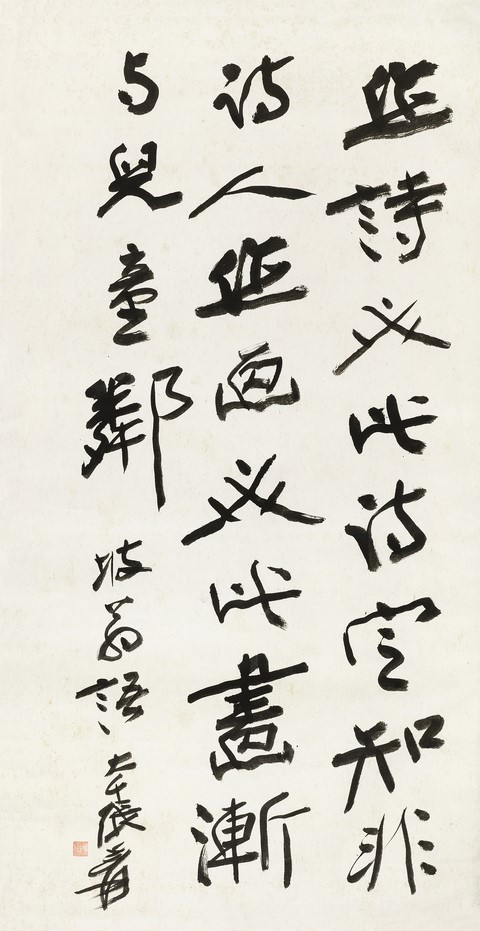 作詩必此诗定知非
诗人作画必此畫漸
与兒童鄰 坡翁語 大千張爰